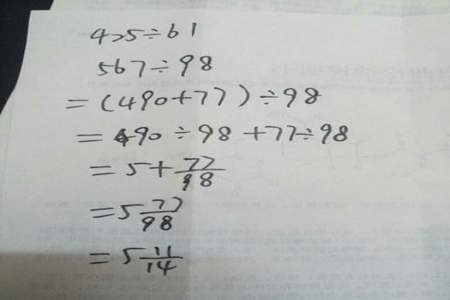 425÷61
567÷98
=(490+77)÷98
=490÷98+77÷98
=5+77/98
=5 77/98
=5 11/14